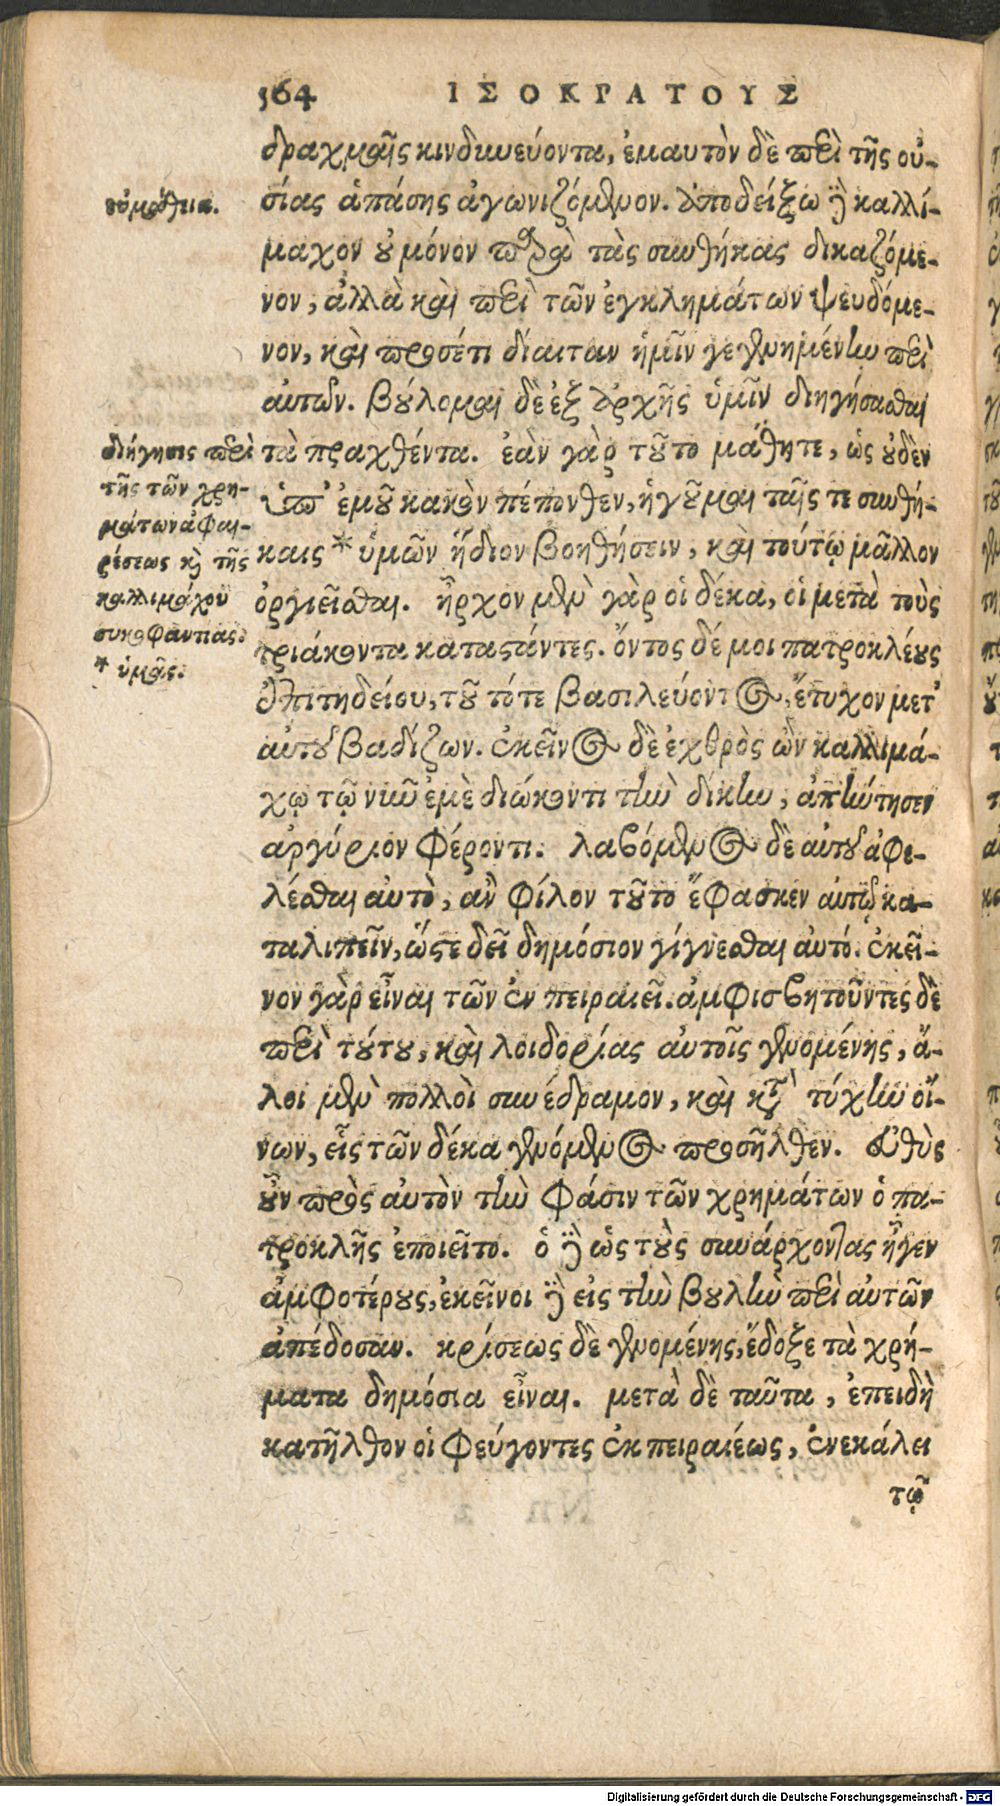 164 ΙΣΟΚΡΑΤΟΥΣ
δραχμαῖς κινδυνεύοντα, ἐμαυτὸν δὲ περὶ τῆς οὐ-
σίας ἁπάσης ἀγωνιζόμενον. ἀποδείξω δὲ καλλί-
μαχον οὐ μόνον παρὰ τὰς συνθήκας δικαζόμε-
νον, ἀλλὰ καὶ περὶ τῶν ἐγκλημάτων ψευδόμε-
νον, καὶ προσέτι δίαιταν ἡμῖν γεγενημένην περὶ
αὐτῶν. βούλομαι δὲ ἐξ ἀρχῆς ὑμῖν διηγήσασθαι
τὰ πραχθέντα. ἐὰν γὰρ τοῦτο μάθητε, ὡς οὐδὲν
ὑπ' ἐμοῦ κακὸν πέπονθεν, ἡγοῦμαι ταῖς τε συνθή-
καις * ὑμῶν ἥδιον βοηθήσειν, καὶ τούτῳ μᾶλλον
ὀργιεῖσθαι. ἦρχον μὲν γὰρ οἱ δέκα, οἱ μετὰ τοὺς
τριάκοντα καταστάντες. ὄντος δέ μοι πατροκλέους
ἐπιτηδείου, τοῦ τότε βασιλεύοντος, ἔτυχον μετ'
αὐτοῦ βαδίζων. ἐκεῖνος δὲ ἐχθρὸς ὢν καλλιμά-
χῳ τῷ νῦν ἐμὲ διώκοντι τὴν δίκην, ἀπήντησεν
ἀργύριον φέροντι. λαβόμενος δὲ αὐτοῦ ἀφε-
λέσθαι αὐτὸ, ἂν φίλον τοῦτο ἔφασκεν αὐτῷ κα-
ταλιπεῖν, ὥστε δεῖ δημόσιον γίγνεσθαι αὐτό. ἐκεῖ-
νον γὰρ εἶναι τῶν ἐν πειραιεῖ. ἀμφισβητοῦντες δὲ
περὶ τούτου, καὶ λοιδορίας αὐτοῖς γενομένης, ἄ-
λοι μὲν πολλοὶ συνέδραμον, καὶ κατὰ τύχην οἵ-
νων, εἷς τῶν δέκα γενόμενος προσῆλθεν. εὐθὺς
οὖν πρὸς αὐτὸν τὴν φάσιν τῶν χρημάτων ὁ πα-
τροκλῆς ἐποιεῖτο. ὁ δὲ ὡς τοὺς συνάρχοντας ἦγεν
ἀμφοτέρους, ἐκεῖνοι δὲ εἰς τὴν βουλὴν περὶ αὐτῶν
ἀπέδοσαν. κρίσεως δὲ γενομένης, ἔδοξε τὰ χρή-
ματα δημόσια εἶναι. μετὰ δὲ ταῦτα, ἐπειδὴ
κατῆλθον οἱ φεύγοντες ἐκ πειραιέως, ἐνεκάλει
τῷ
εὐμάθεια.
διήγησις περὶ
τῆς τῶν χρη-
μάτων ἀφαι-
ρέσεως καὶ τῆς
καλλιμάχου
συκοφαντίας.
* ὑμᾶς.
Digitalisierung gefördert durch die Deutsche Forschungsgemeinschaft - DFG